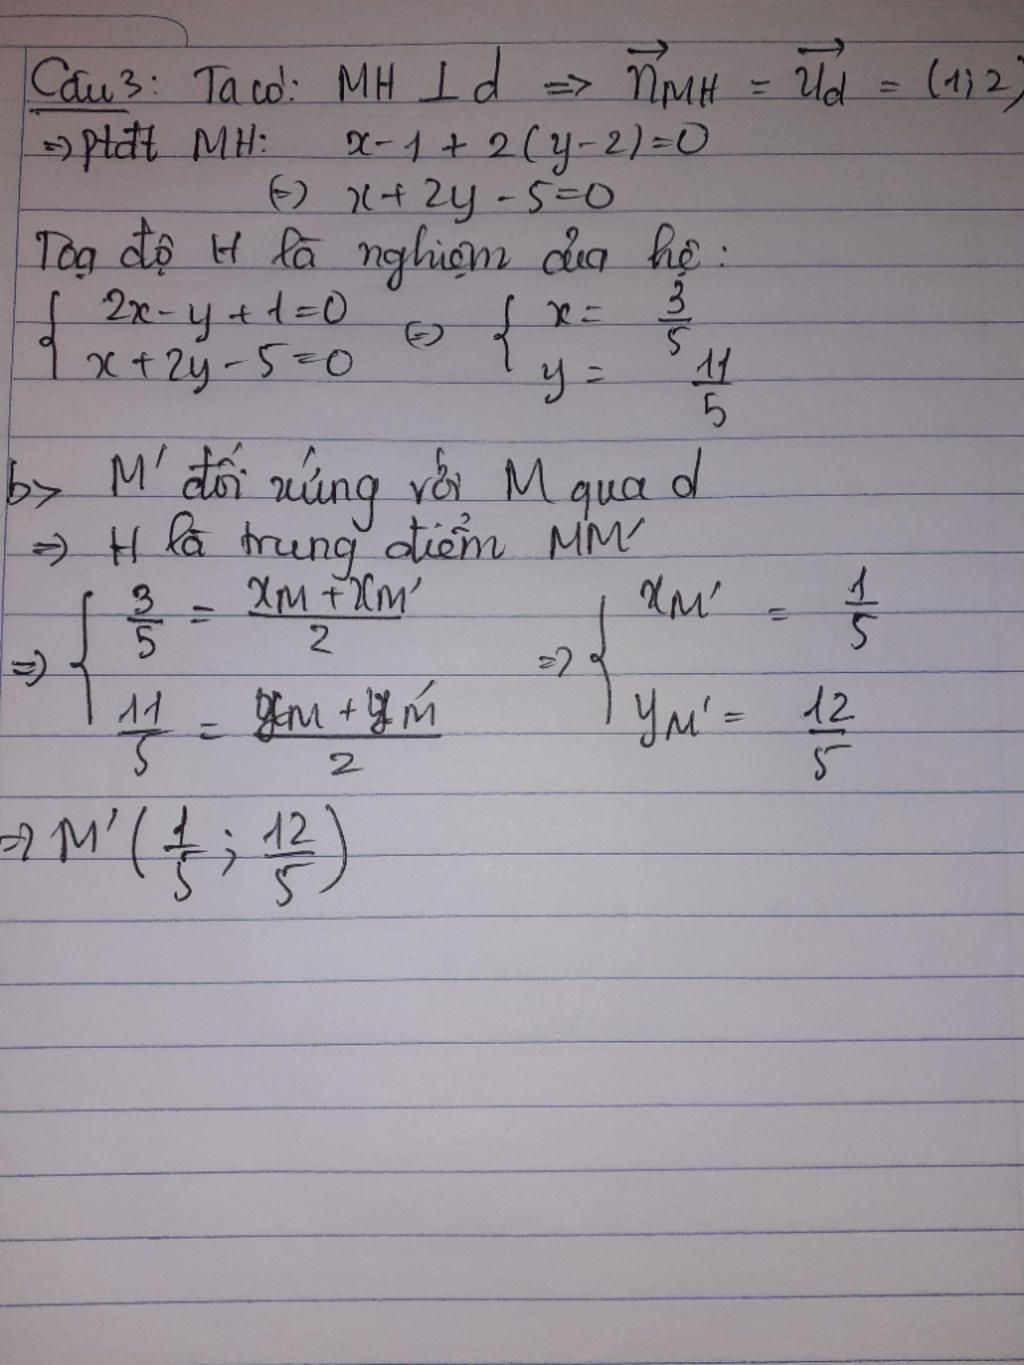 Câu 3: Ta có: MH ⊥ d => n⃗MH = u⃗d = (1; 2)
=> ptđt MH: x-1 + 2(y-2)=0
(=) x+2y-5=0
Toạ độ H là nghiệm của hệ:
{ 2x-y+1=0 (=) { x = 3/5
x+2y-5=0 y = 11/5
b> M' đối xứng với M qua d
=> H là trung điểm MM'
=> { 3/5 = (xM + xM')/2 => { xM' = 1/5
11/5 = (yM + yM')/2 yM' = 12/5
=> M' (1/5; 12/5)